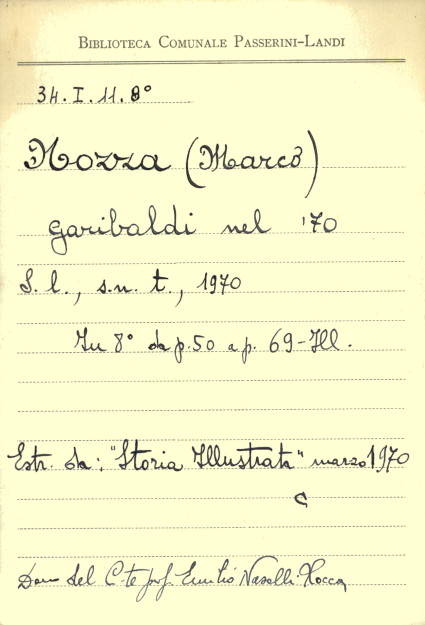 BIBLIOTECA COMUNALE PASSERINI-LANDI
34. I. 11. 8°
Nozza (Marco)
Garibaldi nel '70
S. l., s. n. t., 1970
In 8° da p. 50 a p. 69 - Ill.
Estr. da: "Storia Illustrata" marzo 1970
C
Dono del C.te prof. Emilio Nasalli-Rocca